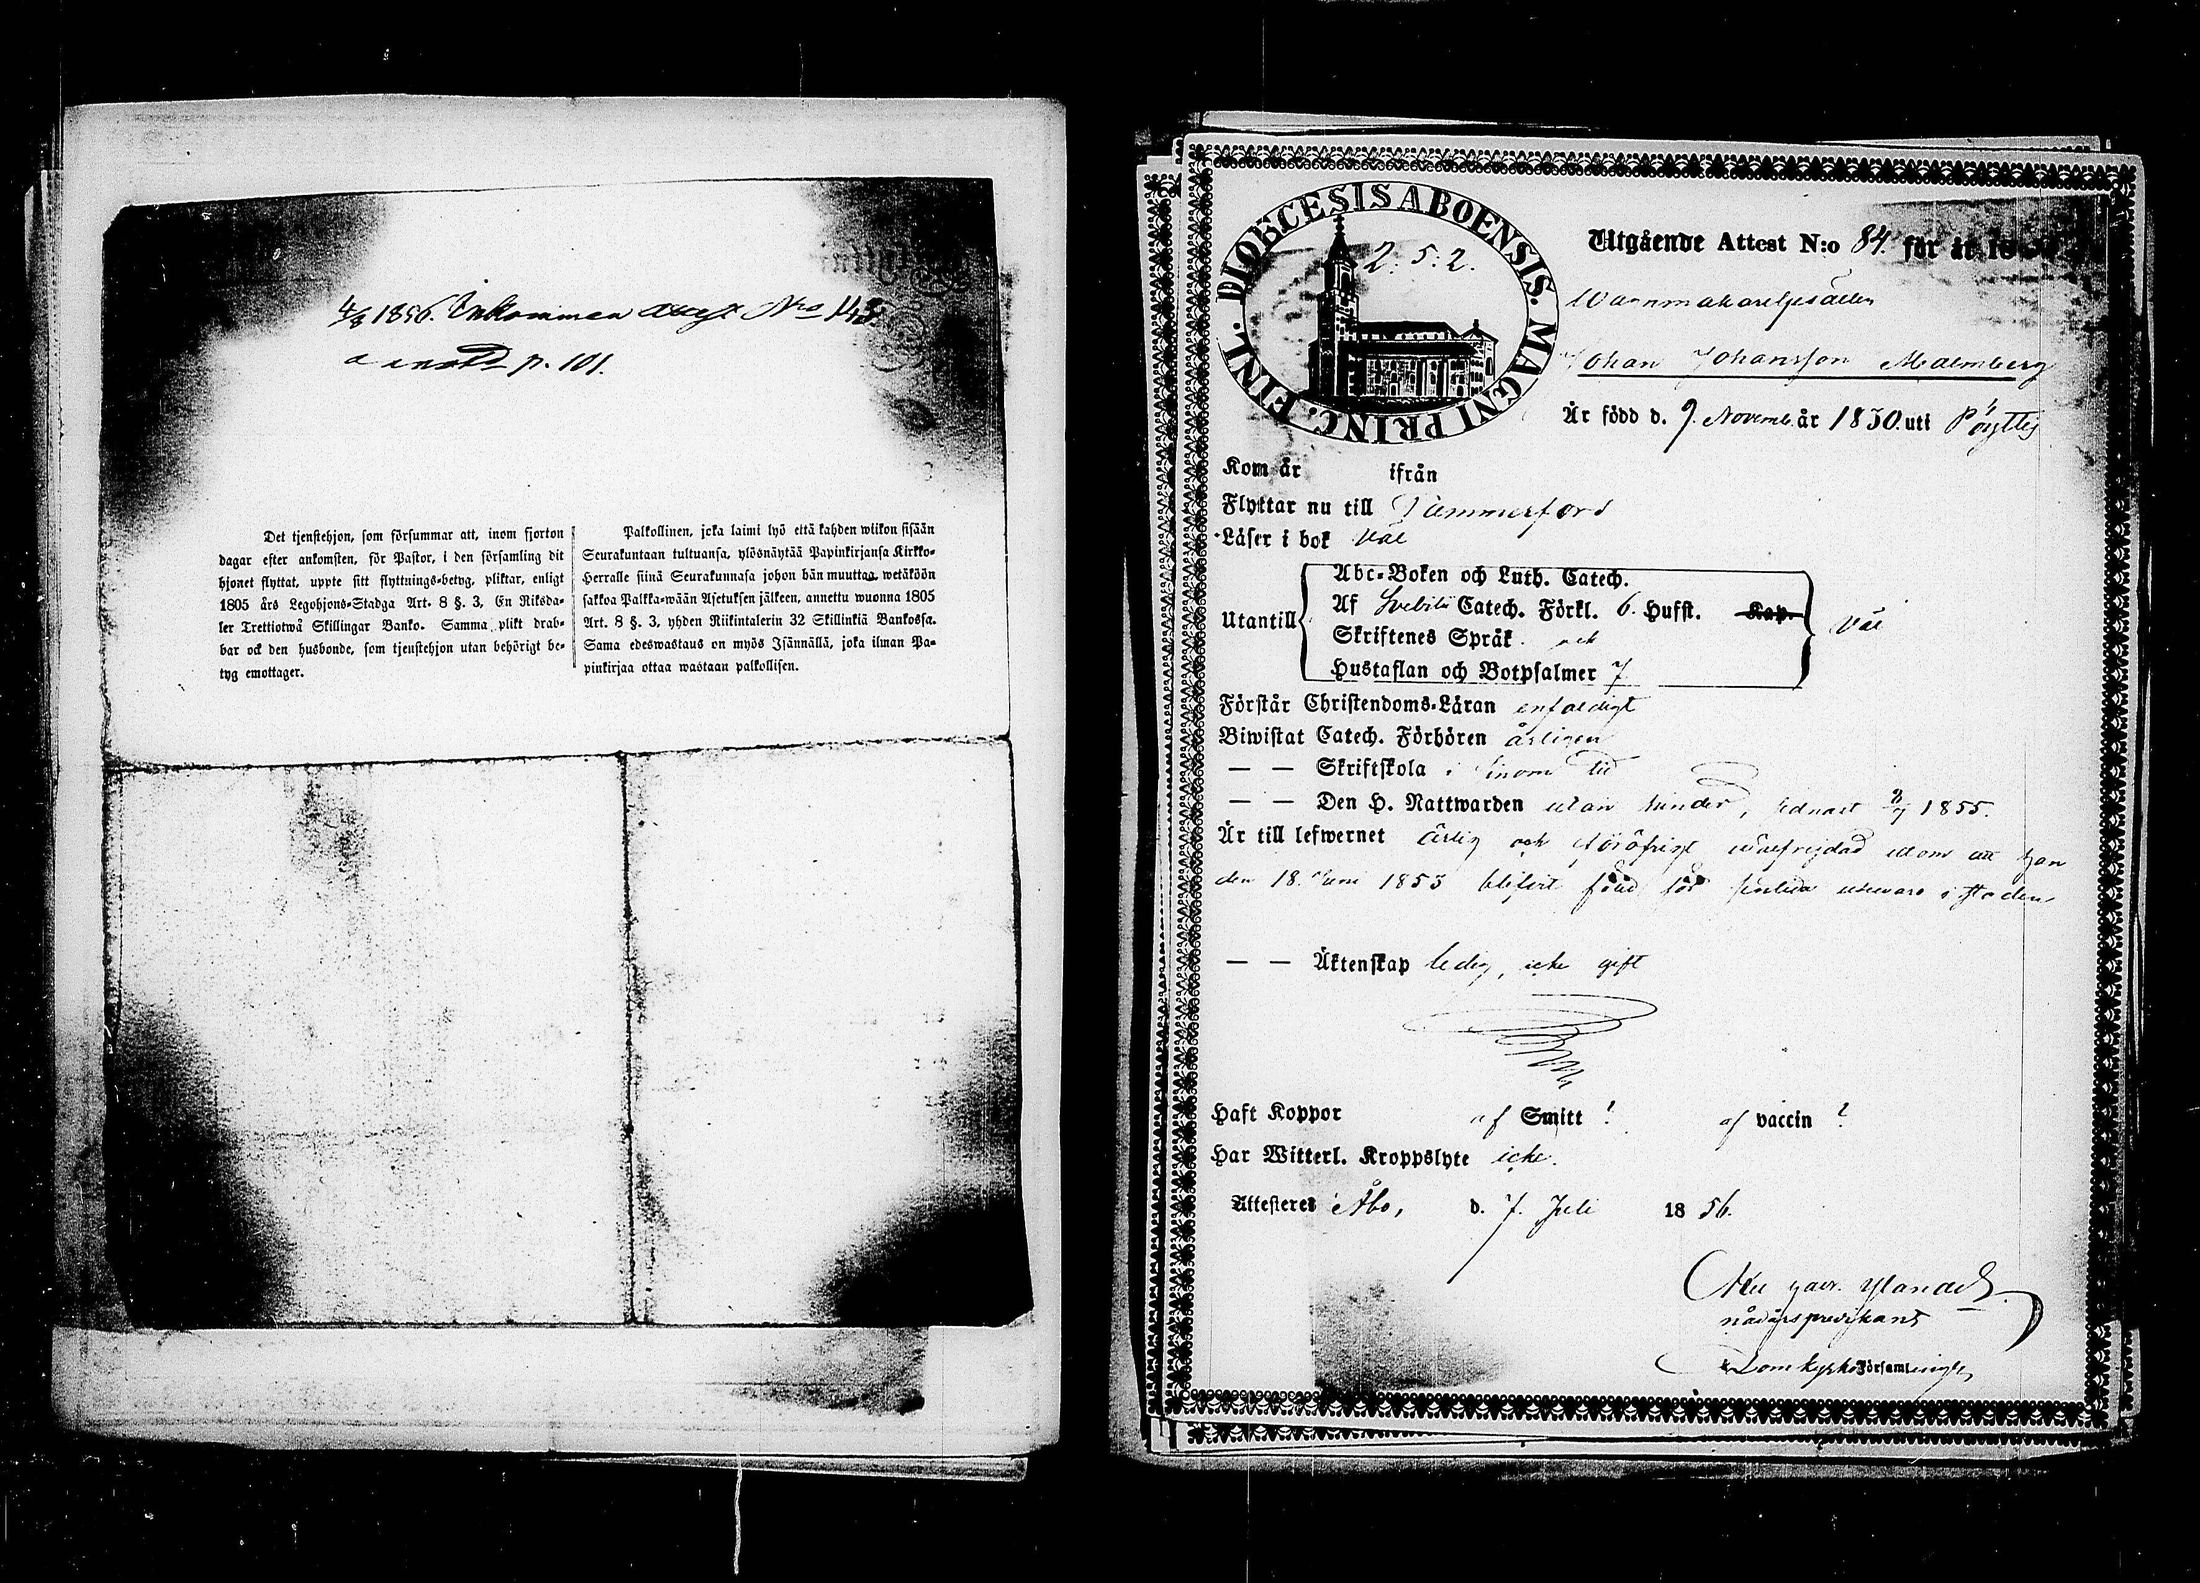 4/8 1856. Inkommen attest No 143.
p. 101.
Det tjenstehjon, som försummar att, inom fjorton
dagar efter ankomsten, för Pastor, i den församling dit
hjonet flyttat, uppte sitt flyttnings-betyg, pliktar, enligt
1805 års Legohjons-Stadga Art. 8 §. 3, En Riksda-
ler Trettiotwå Skillingar Banko. Samma plikt drab-
bar ock den husbonde, som tjenstehjon utan behörigt be-
tyg emottager.
Palkollinen, joka laimi lyö että kahden wiikon sisään
Seurakuntaan tultuansa, ylösnäytää Papinkirjansa Kirkko-
Herralle siinä Seurakunnasa johon hän muuttaa, wetäköön
sakkoa Palkka-wään Asetuksen jälkeen, annettu wuonna 1805
Art. 8 §. 3, yhden Riikintalerin 32 Skillinkiä Bankossa.
Sama edeswastaus on myös Isännällä, joka ilman Pa-
pinkirjaa ottaa wastaan palkollisen.
DIOECESIS ABOENSIS. MAGNI PRINC. FINL.
2. 5. 2.
Utgående Attest N:o 84. för år 18
Wannmakaregesällen
Johan Johansson Malmberg
Är född d. 9. Novemb. år 1830. uti Pöyttis
Kom år ifrån
Flyttar nu till Tammerfors
Läser i bok väl
Utantill
Abc-Boken och Luth. Catech.
Af Svebilii Catech. Förkl. 6. Hufst. Kap.
Skriftenes Språk och
Hustaflan och Botpsalmer 7
väl
Förstår Christendoms-Läran enfaldigt
Biwistat Catech. Förhören årligen
— — Skriftskola i sinom tid
— — Den H. Nattwarden utan hinder, sednast 1855.
Är till lefwernet ärlig och för öfrigt wälfrejdad utom att han
den 18. Juni 1853 blifvit fäld för utevaro i staden
— — Äktenskap ledig, icke gift
Haft Koppor af Smitt ! af vaccin !
Har Witterl. Kroppslyte icke.
Attesteres Åbo, d. 7. Juli 1856.
nådårspredikant
Domkyrko Församlingh